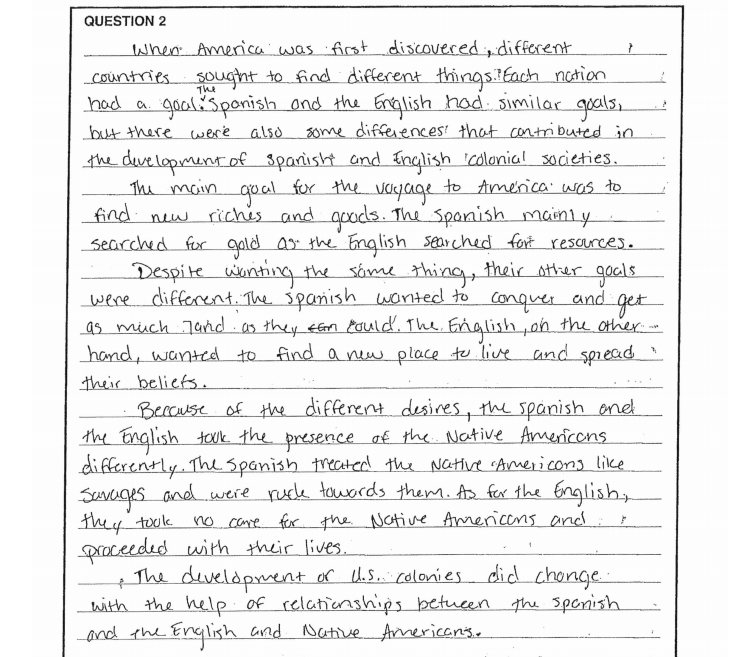 QUESTION 2
When America was first discovered, different
countries sought to find different things. Each nation
had a goal. The Spanish and the English had similar goals,
but there were also some differences that contributed in
the development of Spanish and English colonial societies.
The main goal for the voyage to America was to
find new riches and goods. The Spanish mainly
searched for gold as the English searched for resources.
Despite wanting the same thing, their other goals
were different. The Spanish wanted to conquer and get
as much land as they can could. The English, on the other
hand, wanted to find a new place to live and spread
their beliefs.
Because of the different desires, the Spanish and
the English took the presence of the Native Americans
differently. The Spanish treated the Native Americans like
savages and were rude towards them. As for the English,
they took no care for the Native Americans and
proceeded with their lives.
The development of U.S. colonies did change
with the help of relationships between the Spanish
and the English and Native Americans.